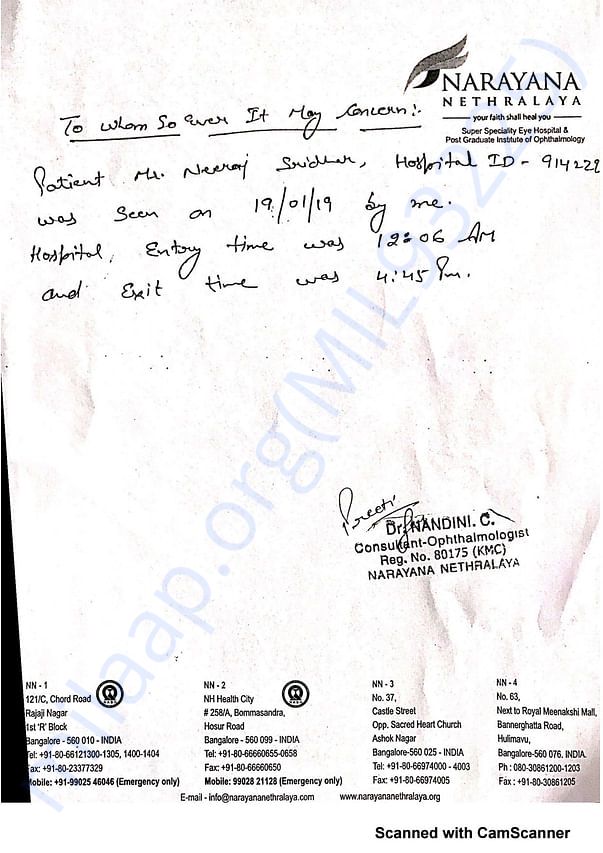 NARAYANA
NETHRALAYA
your faith shall heal you
Super Speciality Eye Hospital &
Post Graduate Institute of Ophthalmology
To Whom So Ever It May Concern:-
Patient Mr. Neeraj Sridhar, Hospital ID - 914222
was seen on 19/01/19 by me.
Hospital, Entry time was 12:06 AM
and Exit time was 4:45 Pm.
Preeti
Dr. NANDINI. C.
Consultant-Ophthalmologist
Reg. No. 80175 (KMC)
NARAYANA NETHRALAYA
NN - 1
121/C, Chord Road
Rajaji Nagar
1st 'R' Block
Bangalore - 560 010 - INDIA
Tel: +91-80-66121300-1305, 1400-1404
Fax: +91-80-23377329
Mobile: +91-99025 46046 (Emergency only)
NN - 2
NH Health City
# 258/A, Bommasandra,
Hosur Road
Bangalore - 560 099 - INDIA
Tel: +91-80-66660655-0658
Fax: +91-80-66660650
Mobile: 99028 21128 (Emergency only)
NN - 3
No. 37,
Castle Street
Opp. Sacred Heart Church
Ashok Nagar
Bangalore-560 025 - INDIA
Tel: +91-80-66974000 - 4003
Fax: +91-80-66974005
NN - 4
No. 63,
Next to Royal Meenakshi Mall,
Bannerghatta Road,
Hulimavu,
Bangalore-560 076. INDIA.
Ph : 080-30861200-1203
Fax : +91-80-30861205
E-mail - info@narayananethralaya.com www.narayananethralaya.org
Scanned with CamScanner